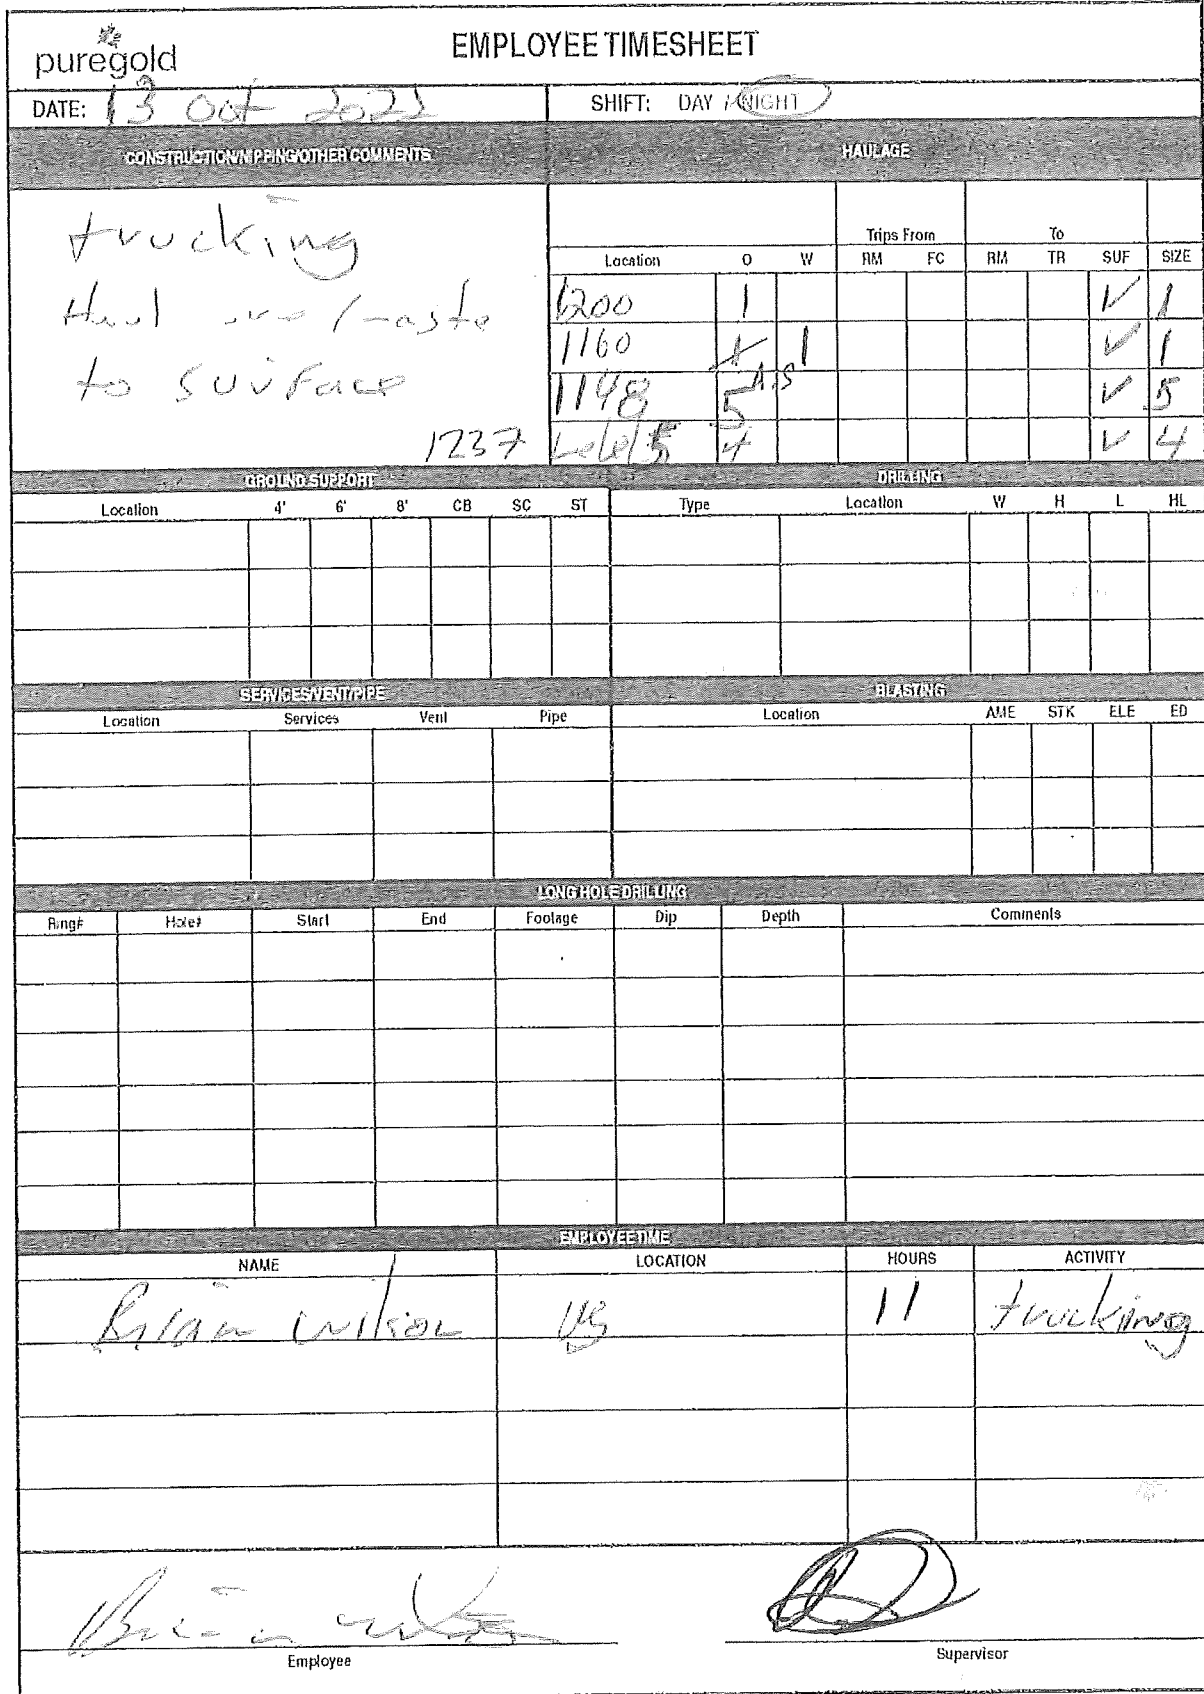 puregold
EMPLOYEE TIMESHEET
DATE: 13 Oct 2022
SHIFT: DAY / NIGHT
CONSTRUCTION/NIPPING/OTHER COMMENTS
HAULAGE
trucking
Haul ore / waste
to surface
1237
Trips From To
Location O W RM FC RM TR SUF SIZE
1200 1 ✓ 1
1160 1 1 ✓ 1
1148 5 ✓ 5
4 ✓ 4
GROUND SUPPORT
DRILLING
Location 4' 6' 8' CB SC ST
Type Location W H L HL
SERVICES/VENT/PIPE
BLASTING
Location Services Vent Pipe
Location AME STK ELE ED
LONG HOLE DRILLING
Ring# Hole# Start End Footage Dip Depth Comments
EMPLOYEE TIME
NAME LOCATION HOURS ACTIVITY
Brian Wilson UG 11 trucking
Employee
Supervisor